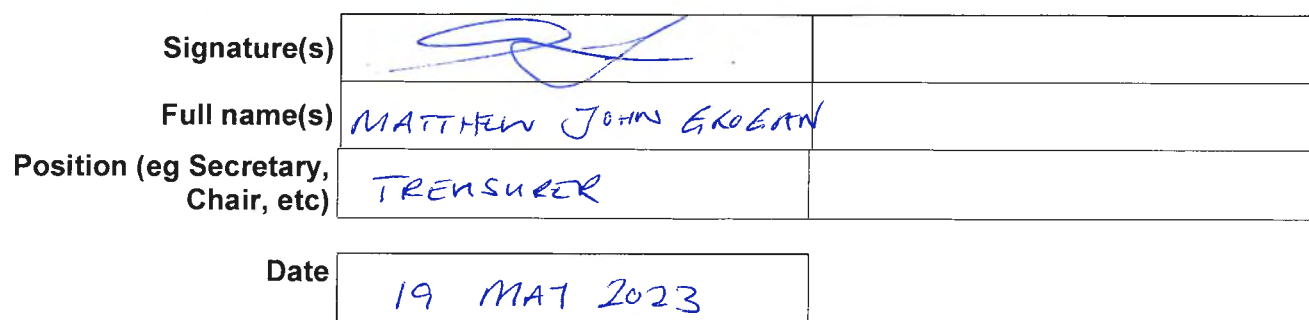 Signature(s)
Full name(s) MATTHEW JOHN GROGAN
Position (eg Secretary,
Chair, etc) TREASURER
Date 19 MAY 2023